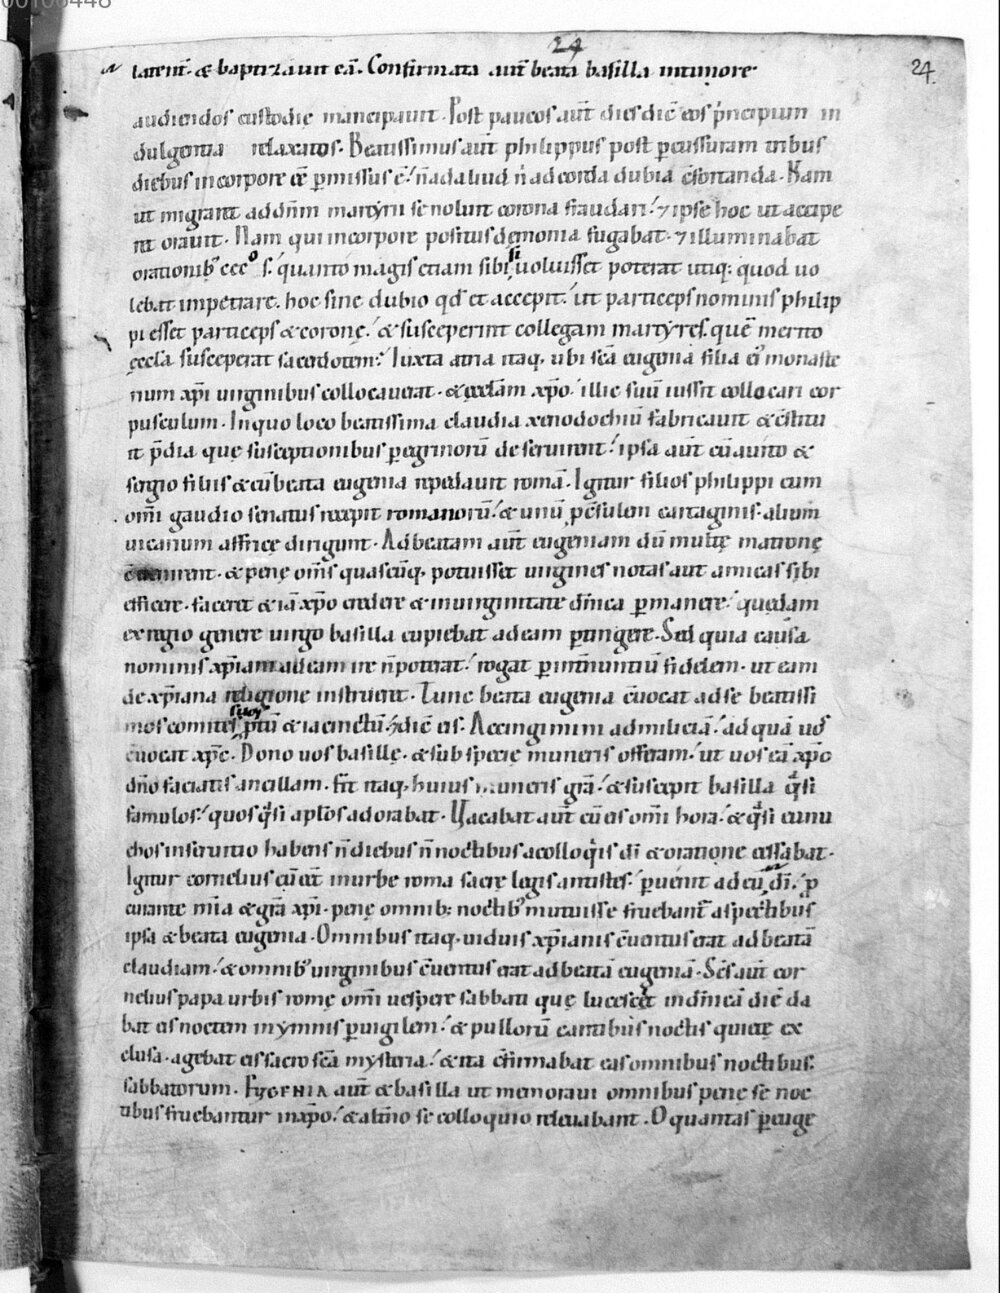 00100448
24
latent̄. & baptizauit eā. Confirmata aut̄ beata basilla intimore
24.
audiendos custodie mancipauit. Post paucos aut̄ dies dīc̄ eos p̄ncipium in
dulgentia relaxatos. Beatissimus aut̄ philippus post ꝑcussuram tribus
diebus in corpore ēē ꝑmissus ē. ad corda dubia c̄fortanda. Nam
ut migrant ad dn̄m martyrii se nolunt corona fraudari. ⁊ ipse hoc ut accipe
ret orauit. Nam qui in corpore positus dęmonia fugabat. ⁊ illuminabat
orationib; cęcos. quanto magis etiam sibi si uoluisset poterat utiq; quod uo
lebat impetrare. hoc sine dubio qd̄ et accepit. ut particeps nominis philip
pi esset particeps & coronę. & susceperint collegam martyres. quē merito
ęccła susceperat sacerdotem. Iuxta atria itaq; ubi sc̄a eugenia filia ei᾿ monaste
rium xp̄i uirginibus collocauerat. & ęccłam xp̄o. illic suū iussit collocari cor
pusculum. In quo loco beatissima claudia xenodochiū fabricauit & c̄stitu
it p̄dia quę susceptionibus ꝑegrinorū deseruirent. ipsa aut̄ cū auito &
sergio filiis & cū beata eugenia repedauit romā. Igitur filios philippi cum
om̄i gaudio senatus recepit romanorū. & unū ꝓc̄sulem cartaginis. alium
uicarium affricę dirigunt. Ad beatam aut̄ eugeniam dū multę matronę
c̄uenirent. & penę om̄s quascūq; potuisset uirgines notas aut amicas sibi
efficere. faceret & iā xp̄o credere & in uirginitate dn̄ica ꝑmanere. quędam
ex regio genere uirgo basilla cupiebat ad eam ꝑtingere. Sed quia causa
nominis xp̄iani ad eam ire n̄ poterat. rogat ꝑ int̄nuntiū fidelem. ut eam
de xp̄iana religione instruerit. Tunc beata eugenia c̄uocat ad se beatissi
mos comites suos ꝓtū & iacinctū. ⁊ dīc̄ eis. Accingimini ad miliciā. ad quā uos
c̄uocat xp̄c. Dono uos basille. & sub specie muneris offeram. ut uos eā xp̄o
dn̄o faciatis ancillam. fit itaq; huius muneris grā. & suscepit basilla q̄si
famulos. quos q̄si apłos adorabat. Uacabat aut̄ cū eis om̄i hora. & q̄si eunu
chos in seruitio habens n̄ diebus n̄ noctibus a colloq̇is dī & oratione cessabat.
Igitur cornelius cū eēt in urbe roma sacrę legis antistes. ꝑuenit ad eū dī. ꝓ
curante mīa & grā xp̄i. penę omnib; noctib; mutuisse fruebant̄ aspectibus
ipsa & beata eugenia. Omnibus itaq; uiduis xp̄ianis c̄uentus erat ad beatā
claudiam. & omnib; uirginibus c̄uentus erat ad beatā eugeniā. Sc̄s aut̄ cor
nelius papa urbis romę om̄i uespere sabbati quę lucescit in dn̄icā diē da
bat eis noctem in ymnis ꝑuigilem. & pullorū cantibus noctis quietę ex
clusa. agebat eis sacrosc̄a mysteria. & ita c̄firmabat eas omnibus noctibus
sabbatorum. EUGENIA aut̄ & basilla ut memoraui omnibus penę se noc
tibus fruebantur in xp̄o. & alt̄no se colloquio releuabant. O quantas ꝑ euge